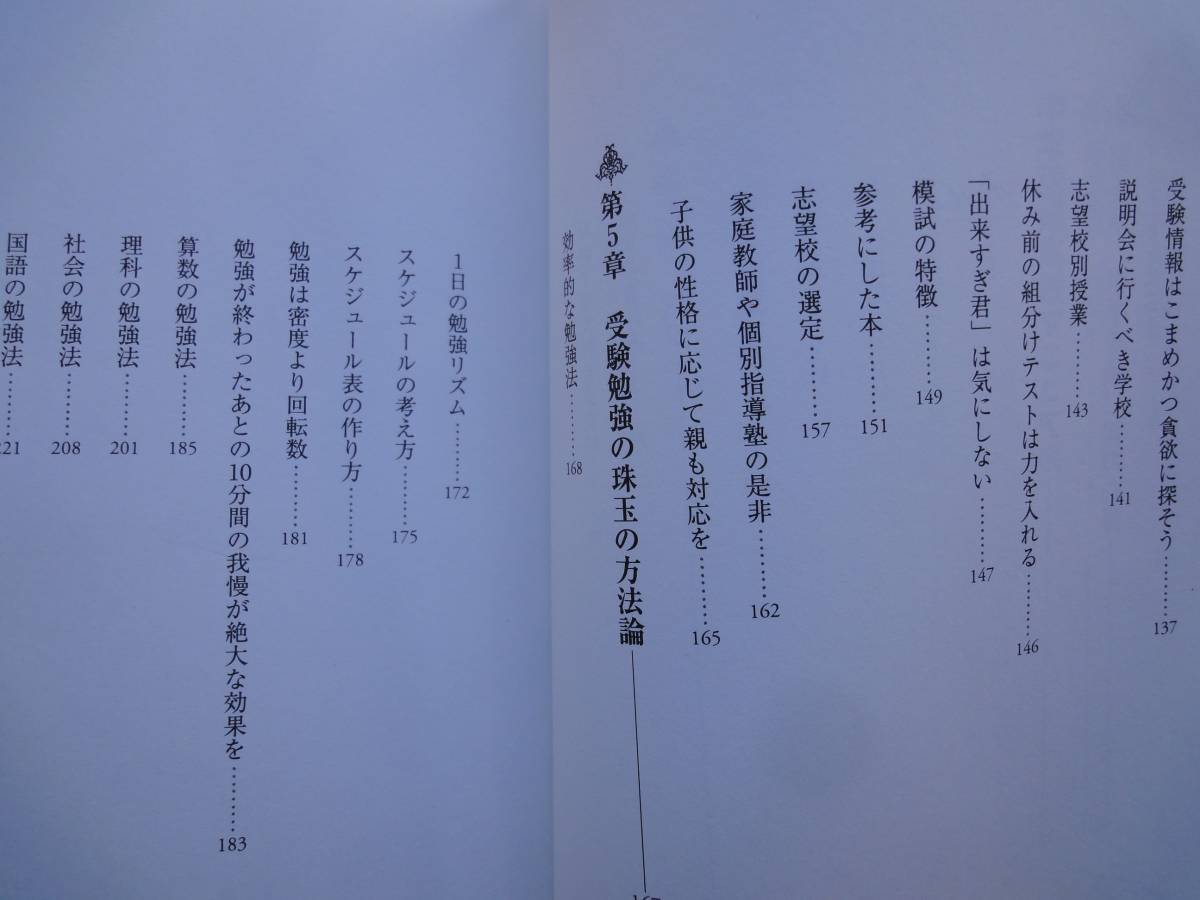 受験情報はこまめかつ貪欲に探そう………137
説明会に行くべき学校………141
志望校別授業………143
休み前の組分けテストは力を入れる………146
「出来すぎ君」は気にしない………147
模試の特徴………149
参考にした本………151
志望校の選定………157
家庭教師や個別指導塾の是非………162
子供の性格に応じて親も対応を………165
第5章 受験勉強の珠玉の方法論
効率的な勉強法………168
1日の勉強リズム………172
スケジュールの考え方………175
スケジュール表の作り方………178
勉強は密度より回転数………181
勉強が終わったあとの10分間の我慢が絶大な効果を………183
算数の勉強法………185
理科の勉強法………201
社会の勉強法………208
国語の勉強法………221